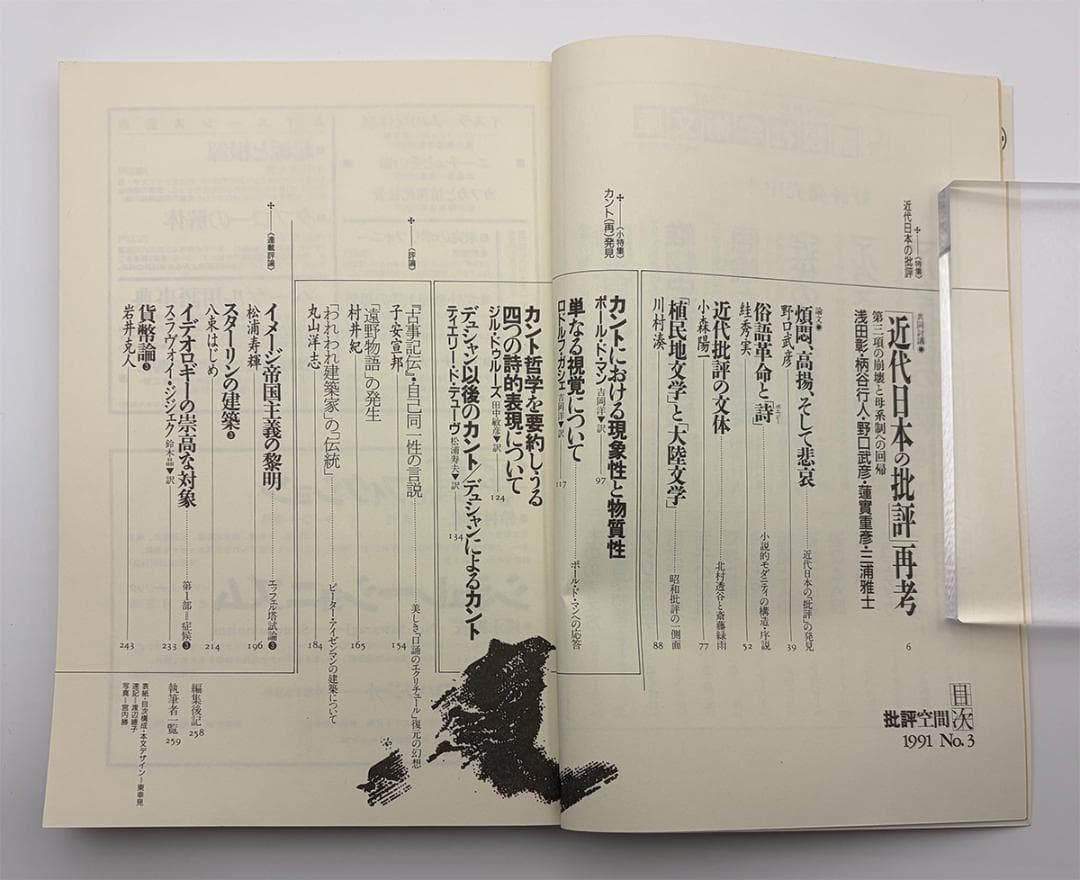 目次
批評空間
1991 No.3
✢——〈特集〉
近代日本の批評
共同討議●
「近代日本の批評」再考
第三項の崩壊と母系制への回帰
浅田彰・柄谷行人・野口武彦・蓮實重彦・三浦雅士
6
論文●
煩悶、高揚、そして悲哀
近代日本の「批評」の発見
野口武彦
39
俗語革命と「詩」
小説的モダニティの構造・序説
絓秀実
52
近代批評の文体
北村透谷と斎藤緑雨
小森陽一
77
「植民地文学」と「大陸文学」
昭和批評の一側面
川村湊
88
✢——〈小特集〉
カント(再)発見
カントにおける現象性と物質性
ポール・ド・マン 吉岡洋▼訳
97
単なる視覚について
ポール・ド・マンへの応答
ロドルフ・ガシェ 吉岡洋▼訳
117
カント哲学を要約しうる
四つの詩的表現について
ジル・ドゥルーズ 田中敏彦▼訳
124
デュシャン以後のカント/デュシャンによるカント
ティエリー・ド・デューヴ 松浦寿夫▼訳
134
✢——〈評論〉
『古事記伝』・自己同一性の言説
美しき「口誦のエクリチュール」復元の幻想
子安宣邦
154
「遠野物語」の発生
村井紀
165
「われわれ建築家」の「伝統」
ピーター・アイゼンマンの建築について
丸山洋志
184
✢——〈連載評論〉
イメージ帝国主義の黎明
エッフェル塔試論❸
松浦寿輝
196
スターリンの建築❸
八束はじめ
214
イデオロギーの崇高な対象
第Ⅰ部=症候❸
スラヴォイ・ジジェク 鈴木晶▼訳
233
貨幣論❸
岩井克人
243
編集後記 258
執筆者一覧 259
表紙・目次構成・本文デザイン—東幸見
速記—渡辺緩子
写真—宮内勝